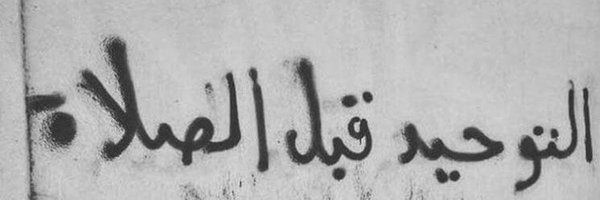 التوحيد قبل الصلاة